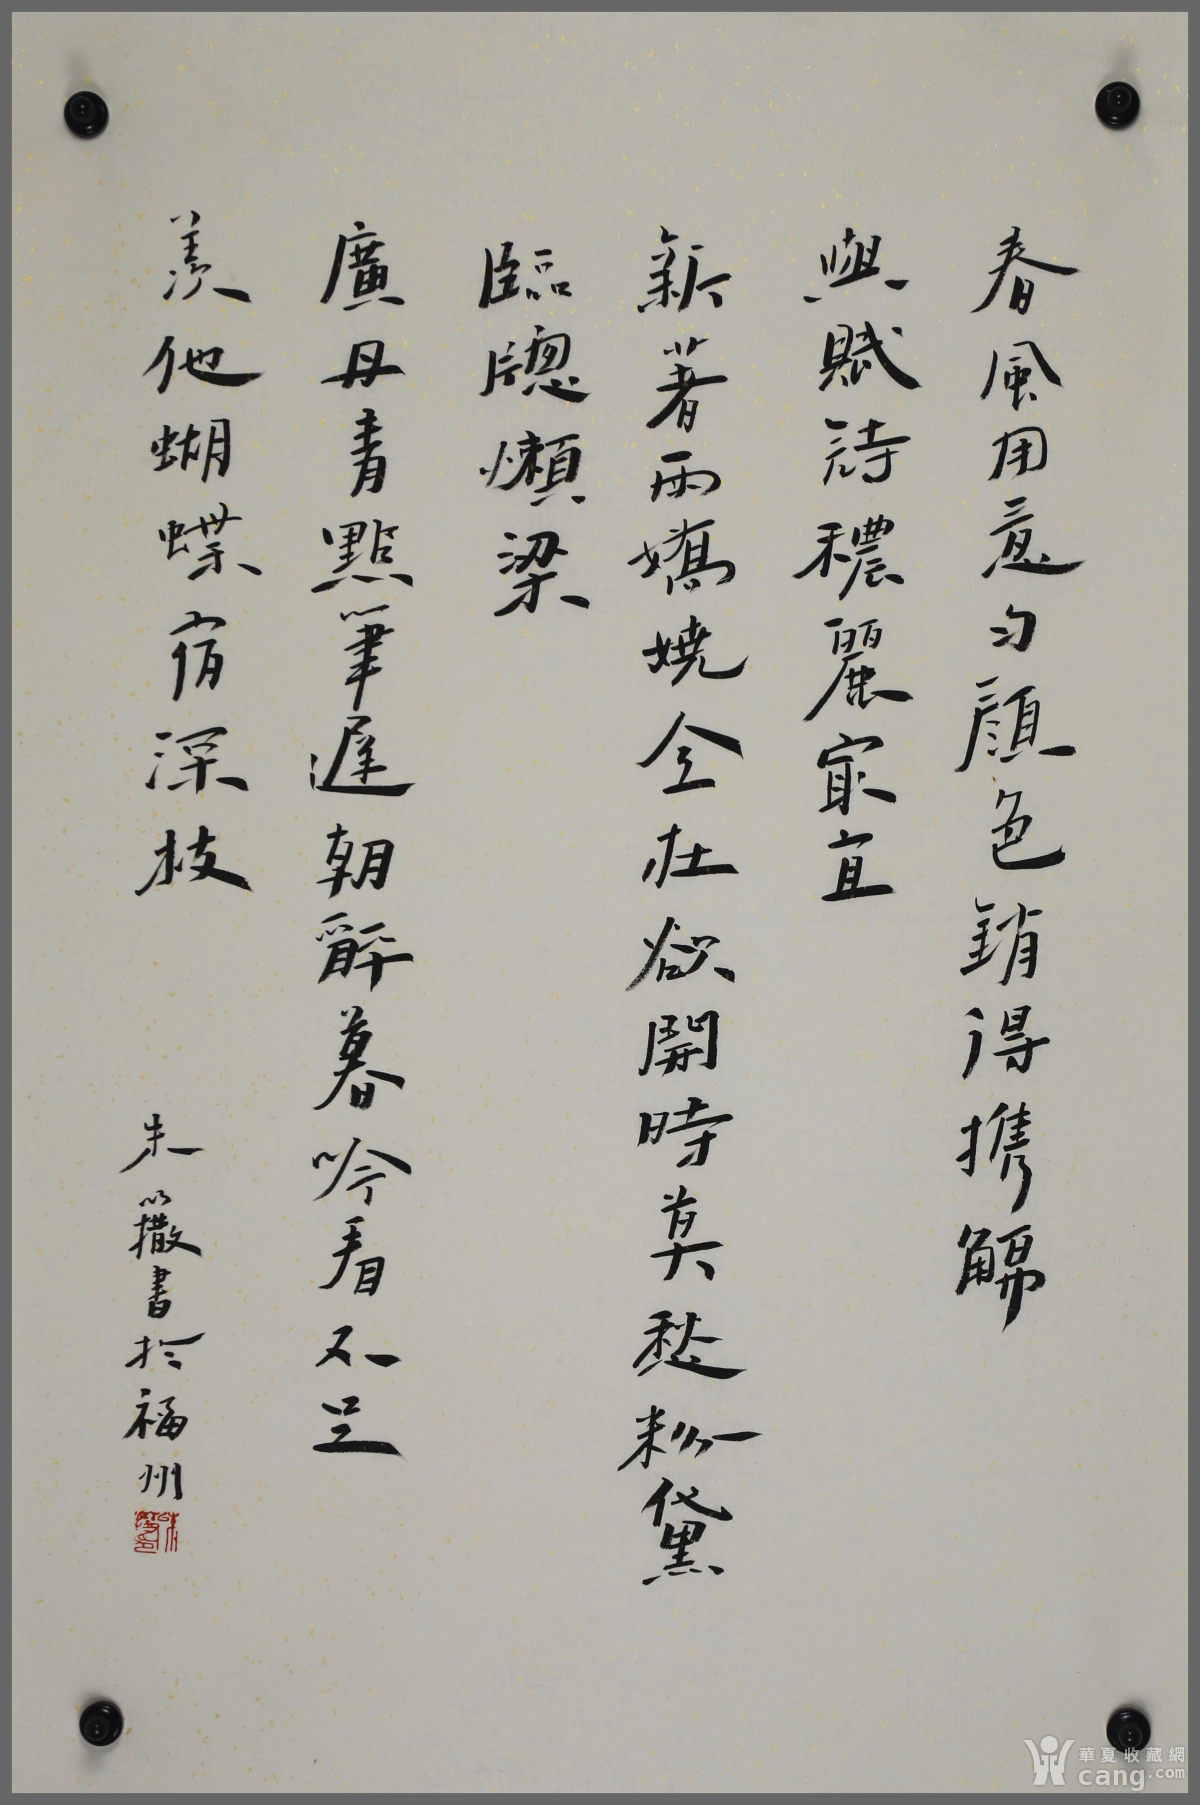 春風用意匀顔色銷得携觴
與賦詩穠麗冣宜
新著雨嬌嬈全在欲開時莫愁粉黛
臨牕懶梁
廣丹青點筆遲朝醉暮吟看不足
羨他蝴蝶宿深枝
朱以撒書於福州
華夏收藏網
cang.com